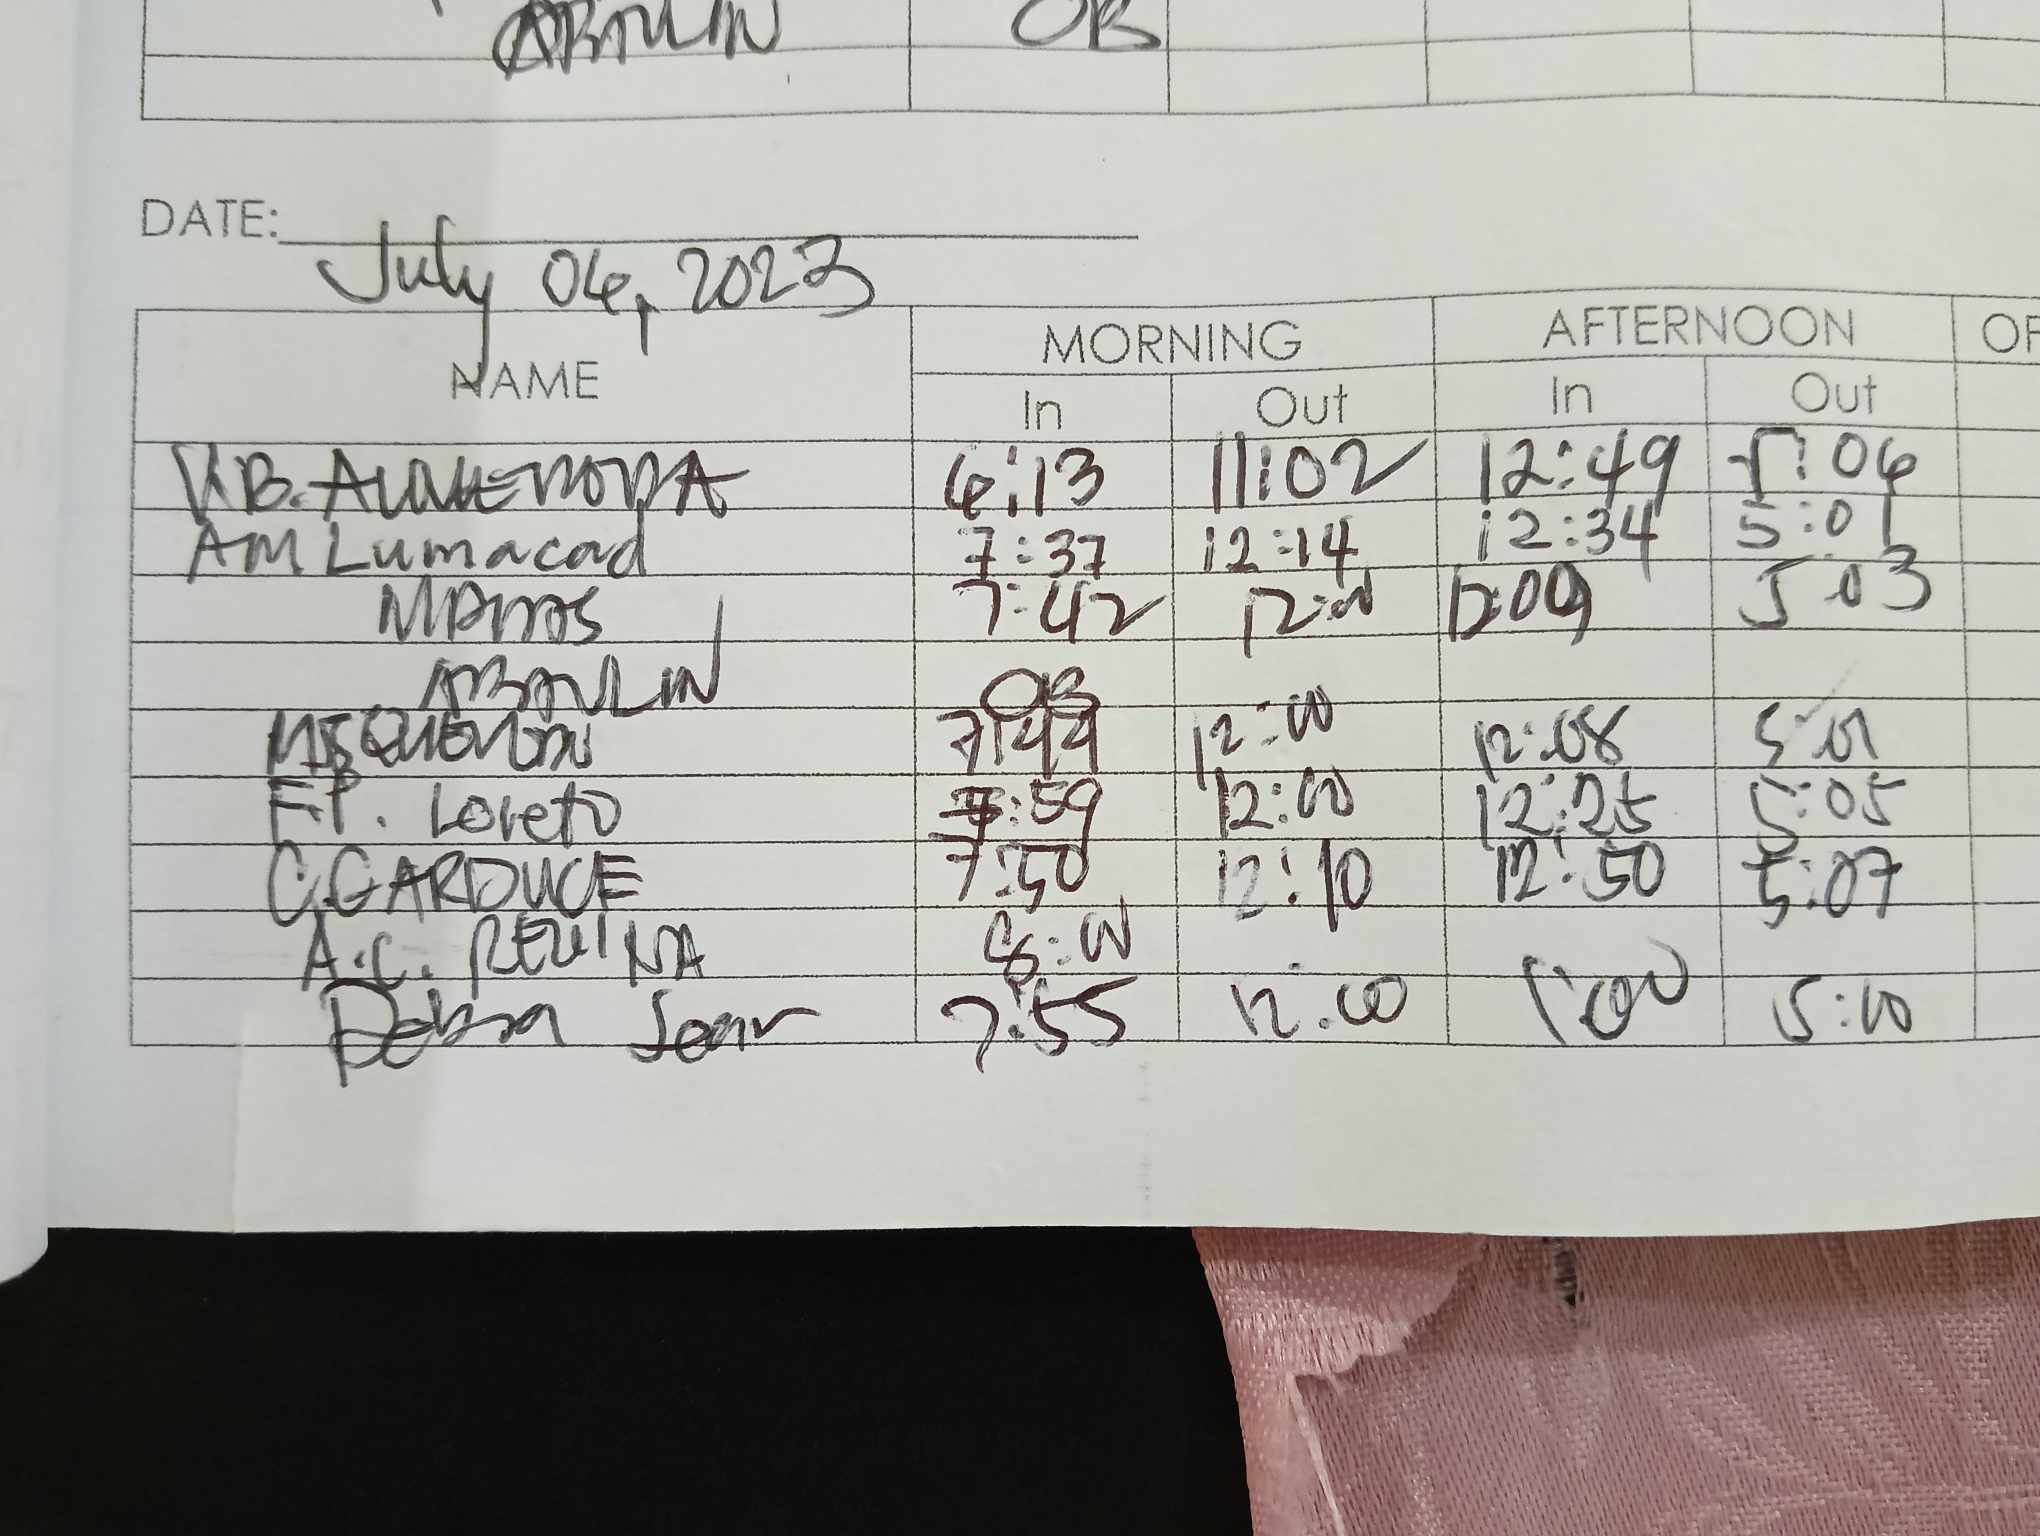 ABAULIN OB
DATE:
July 06, 2023
NAME MORNING AFTERNOON OF
In Out In Out
V.B. 6:13 11:02 12:49 5:06
AM Lumacad 7:37 12:14 12:34 5:01
7:42 12:00 12:09 5:03
ABAULIN OB
7:44 12:00 12:08 5:01
F.P. Loreto 7:59 12:00 12:25 5:05
C. GARDUCE 7:50 12:10 12:50 5:07
A.C. 8:00
Debra Jean 7:55 12:00 1:00 5:00